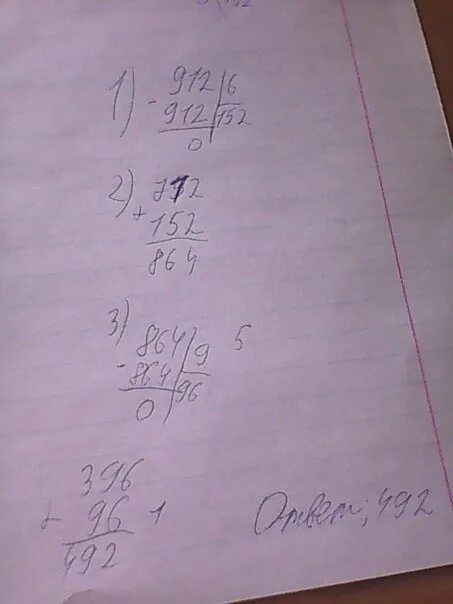 1) - 912 | 6
912 | 152
0
2) + 712
152
864
3) - 864 | 9 5
864 | 96
0
+ 396
96 1
492
Ответ; 492